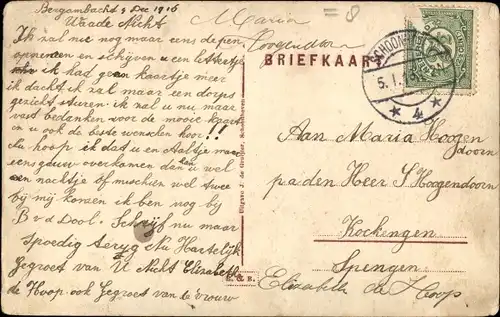 Bergambacht 3 Dec 1916
Waade Nicht
Ik zal me nog maar eens de pen
opnemen en schijven u een lettertje
ik had geen kaartje meer
ik dacht ik zal maar een dorps
gezicht sturen. ik zal u nu maar
vast bedanken voor de mooie kaart
en u ook de beste wenschen hoor!!
Nu hoop ik dat u en Aaltje maar
eens gauw overkomen dan kan u wel
een nachtje of mischien wel twee
bij mij komen ik ben nog by
B v d Dool. Schrijf nu maar
Spoedig teryg Nu Hartelijk
Gegroet van U Nicht Elizabeth
de Hoop ook Gegroet van de vrouw
Maria
Hoogendoorn
= 8
BRIEFKAART
SCHOONHOVEN
5.1.1
4
Uitgave J. de Greijder, Schoonhoven
Aan Maria Hoogen
doorn
p.a den Heer S Hoogendoorn
Kockengen
Spengen
Elizabeth de Hoop